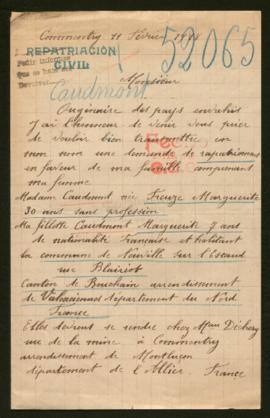 Commentry 11 Février 1918
52065
REPATRIACIÓN
CIVIL
Pedir informes
Monsieur
Caudmont
Originaire des pays envahis
J'ai l'honneur de venir vous prier
de vouloir bien transmettre en
mon nom une demande de rapatriement
en faveur de ma famille comprenant
ma femme
Madame Caudmont née Marguerite
30 ans sans profession
Ma fillette Caudmont Marguerite 7 ans
de nationalité Française et habitant
la commune de Neuville sur l'Escaut
rue
Canton de Bouchain arrondissement
de Valenciennes département du Nord
France
Elles devront se rendre chez Mme
rue de la mine à Commentry
arrondissement de Montluçon
département de l'Allier. France